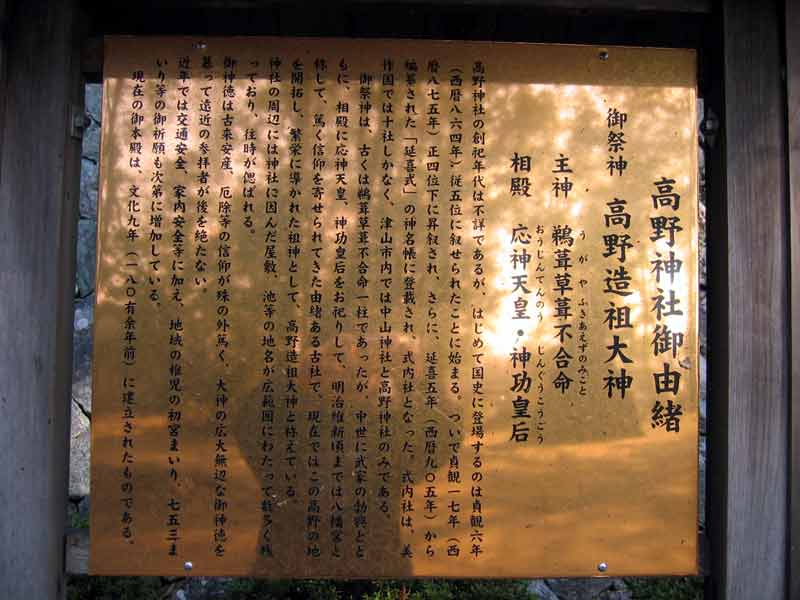 高野神社御由緒
御祭神　高野造祖大神
主神　鵜葺草葺不合命
うがやふきあえずのみこと
相殿　応神天皇・神功皇后
おうじんてんのう　じんぐうこうごう
高野神社の創祀年代は不詳であるが、はじめて国史に登場するのは貞観六年
（西暦八六四年）従五位に叙せられたことに始まる。ついで貞観一七年（西
暦八七五年）正四位下に昇叙され、さらに、延喜五年（西暦九〇五年）から
編纂された「延喜式」の神名帳に登載され、式内社となった。式内社は、美
作国では十社しかなく、津山市内では中山神社と高野神社のみである。
御祭神は、古くは鵜葺草葺不合命一柱であったが、中世に武家の勃興とと
もに、相殿に応神天皇、神功皇后をお祀りして、明治維新頃までは八幡宮と
称して、篤く信仰を寄せられてきた由緒ある古社で、現在ではこの高野の地
を開拓し、繁栄に導かれた祖神として、高野造祖大神と称えている。
神社の周辺には神社に因んだ屋敷、池等の地名が広範囲にわたって数多く残
っており、往時が偲ばれる。
御神徳は古来安産、厄除等の信仰が殊の外篤く、大神の広大無辺な御神徳を
慕って遠近の参拝者が後を絶たない。
近年では交通安全、家内安全等に加え、地域の稚児の初宮まいり、七五三ま
いり等の御祈願も次第に増加している。
現在の御本殿は、文化九年（一八〇有余年前）に建立されたものである。